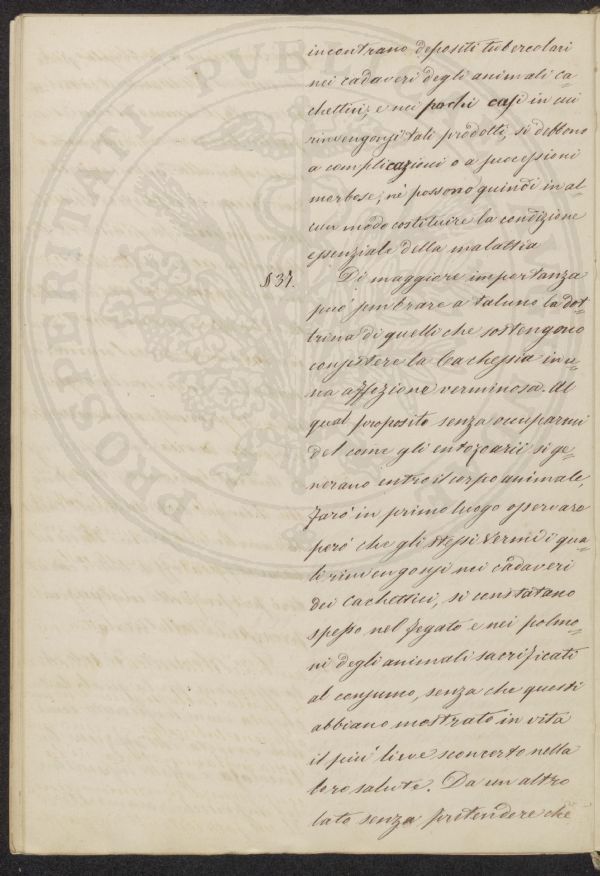 incontrano depositi tubercolari
nei cadaveri degli animali ca=
chettici; e nei pochi casi in cui
rinvengonsi tali prodotti, si debbono
a complicazioni o a successioni
morbose; nè possono quindi in al=
cun modo costituire la condizione
essenziale della malattia
§ 37. Di maggiore importanza
può sembrare a taluno la dot=
trina di quelli che sostengono
consistere la Cachessia in u=
na affezione verminosa. Al
qual proposito senza occuparmi
del come gli entozoarii si ge=
nerano entro il corpo animale,
farò in primo luogo osservare
però che gli stessi vermi i qua=
li rinvengonsi nei cadaveri
dei Cachettici, si constatano
spesso nel fegato e nei polmo=
ni degli animali sacrificati
al consumo, senza che questi
abbiano mostrato in vita
il più lieve sconcerto nella
loro salute. Da un altro
lato senza pretendere che
PROSPERITATI PUBL